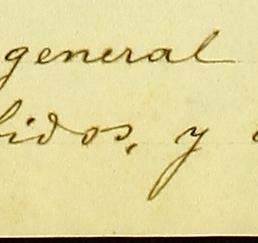 general
lidos, y